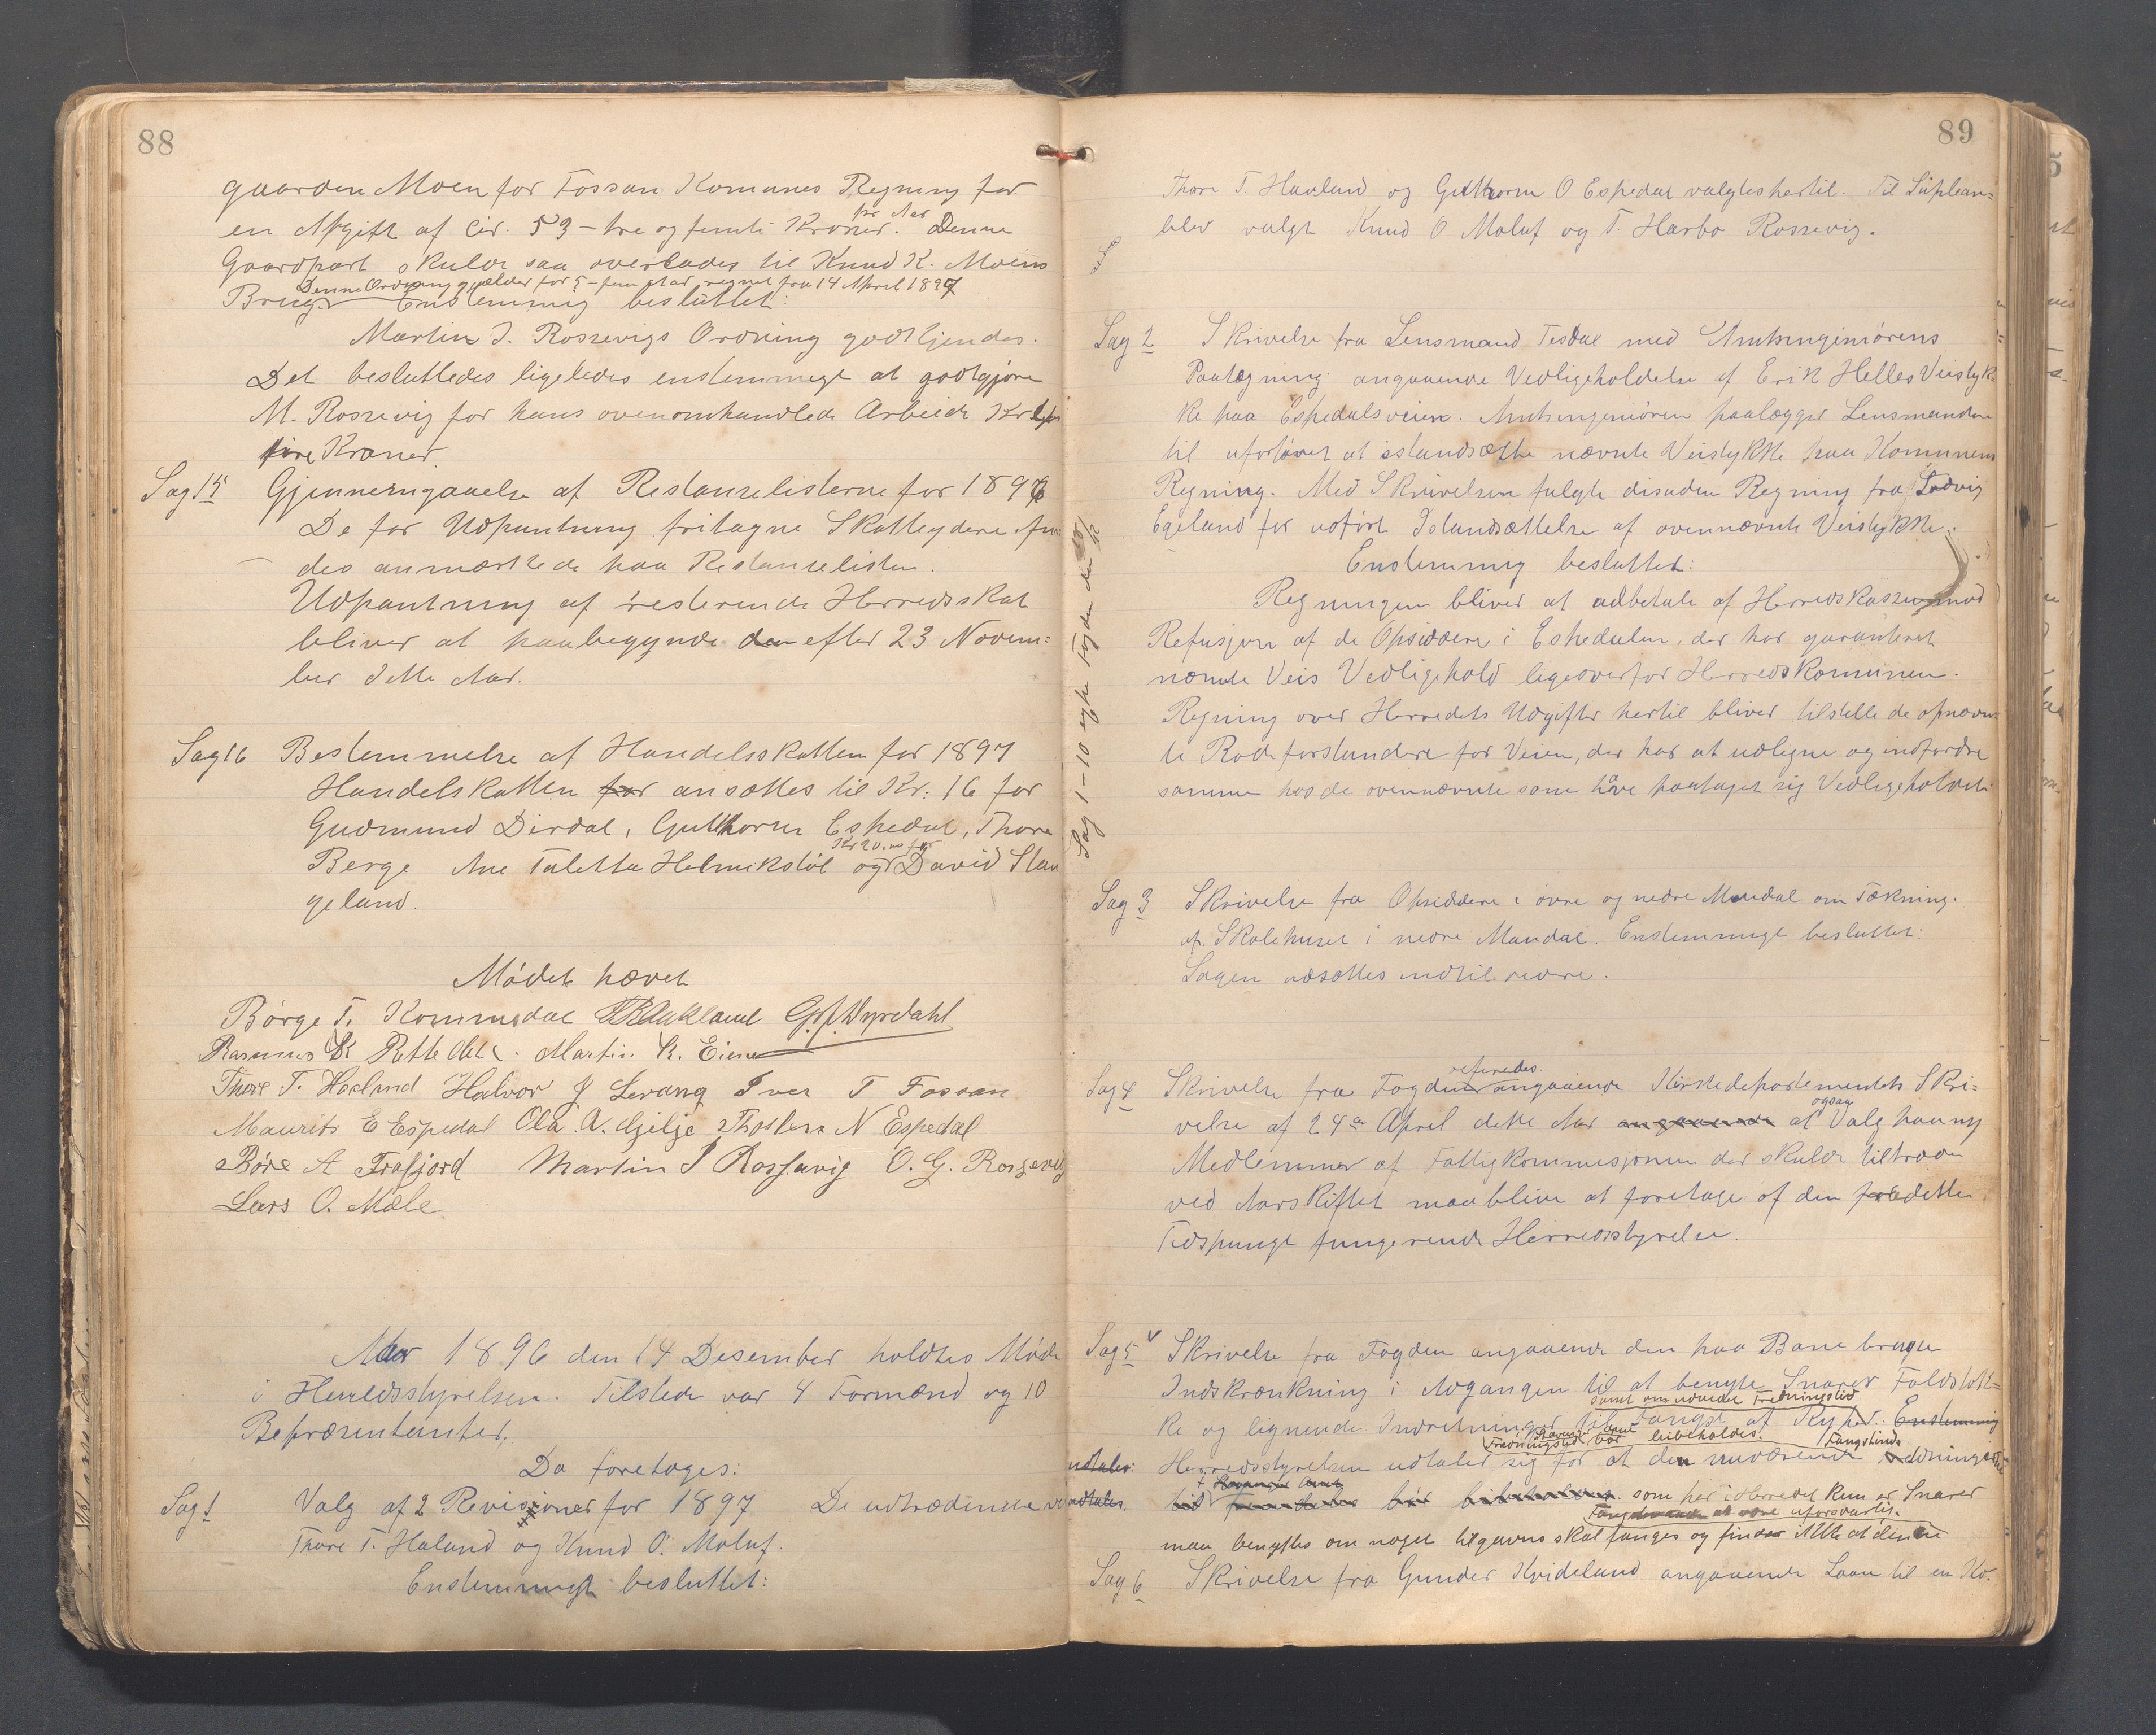 88
gaarden Moen for Fossan Komunes Regning for
en Afgift af cir. 53 - tre og femti Kroner pr Aar. Denne
Gaardpart skulde saa overlades til Knud K. Moens
Brug. Denne Ordning gjælder for 5 - fem Aar regnet fra 14 April 1897
Enstemmig besluttet:
Martin J. Rossevigs Ordning godkjendes.
Det besluttedes ligeledes enstemmigt at godtgjøre
M. Rossevig for hans ovenomhandlede Arbeide Kr
fire Kroner.
Sag 15 Gjennemgaaelse af Restanselisterne for 1896
De for Udpantning fritagne Skatteydere fin
des anmærkede paa Restanselisten.
Udpantning af resterende Herredsskat
bliver at paabegynde den efter 23 Novem=
ber dette Aar.
Sag 16 Bestemmelse af Handelsskatten for 1897
Handelskatten for ansættes til Kr: 16 for
Gudmund Dirdal, Gutthorm Espedal, Thore
Berge Ane Taletta Helmikstøl og Kr 20.00 for David Stan
geland.
Mødet hævet
Børge T. Kommedal Aukland Dyrdahl
Rasmus K Martin K. Eiene
Thore T. Haaland Halvor J Levang Iver T Fossan
Maurits E Espedal Ola A. Gjilje Thosten N Espedal
Børe A Frafjord Martin J Rossavig O. G. Rossevig
Lars O. Mæle
Aar 1896 den 14 Desember holdtes Møde
i Herredsstyrelsen. Tilstede var 4 Formænd og 10
Repræsentanter.
Da foretoges:
Sag 1 Valg af 2 Revisioner for 1897 De udtrædende
Thore T. Haland og Knud O. Maluf.
Enstemmigt besluttet:
89
Thore T. Haaland og Gutthorm O Espedal valgtes hertil. Til Suplean=
blev valgt Knud O Maluf og T. Harbo Rossevig.
Sag 2 Skrivelse fra Lensmand Tesdal med Amtsingeniørens
Paategning angaaende Vedligeholdelse af Erik Helles Veistyk
ke paa Espedalsveien. Amtsingeniøren paalægger Lensmanden
til uforløvet at istandsætte nævnte Veistykke paa Komunens
Regning. Med Skrivelsen fulgte disuden Regning fra Ludvig
Egeland for udført Istandsættelse af ovennævnte Veistykke.
Enstemmig besluttet:
Regningen bliver at udbetale af Herredskassen mod
Refusjon af de Opsiddere i Espedalen, der har garanteret
nævnte Veis Vedligehold ligeoverfor Herredskomunen.
Regning over Herredets Udgifter hertil bliver tilstelle de opnævn
te Rodeforstandere for Veien, der har at udligne og indfordre
samme hos de ovennævnte som have paataget sig Vedligeholdet
Sag 1-10 Fogden
Sag 3 Skrivelse fra Opsiddere i øvre og nedre Maudal om Tækning
af Skolehuset i nedre Maudal. Enstemmigt besluttet:
Sagen udsættes indtil videre.
Sag 4 Skrivelse fra Fogden referedes angaaende Kirkedepartementets Skri=
velse af 24de April dette Aar angaaende at ogsaa Valg paa ny
Medlemmer af Fattigkommisjonen der skulde tiltræde
ved Aarskiftet maa blive at foretage af den paa dette
Tidspungt fungerende Herredsstyrelse.
Sag 5 Skrivelse fra Fogden angaaende den paa Bane bragte
Indskrænkning i Adgangen til at benytte Snarer Faldstok=
ke og lignende Indretninger til Fangst af Ryper. samt om udvidet Fredningstid Enstemmig
udtaler: Herredsstyrelsen udtaler sig for at den nuværende Fredningstid bør beibeholdes. Fangstinds
som her i Herredet kun er Snarer
maa benyttes om noget tilgavns skal fanges og finder ikke at denne
Fangstmaade at være uforsvarlig.
Sag 6 Skrivelse fra Gunder Kvideland angaaende Laan til en Ko.